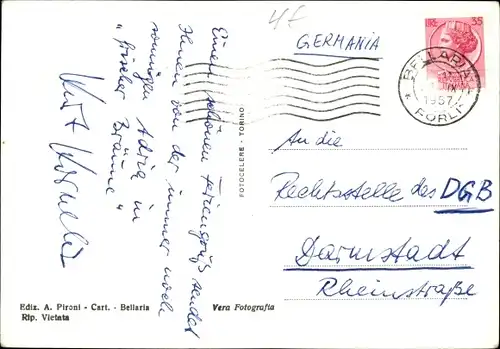 4f
GERMANIA
LIRE 35
BELLARIA
IX
1957
* FORLI *
Einen schönen Feriengruß sendet
Ihnen von der immer noch
sonnigen Adria in
"frischer Bräune"
Kurt
FOTOCELERE - TORINO
An die
Rechtsstelle des DGB
Darmstadt
Rheinstraße
Ediz. A. Pironi - Cart. - Bellaria
Rip. Vietata
Vera Fotografia